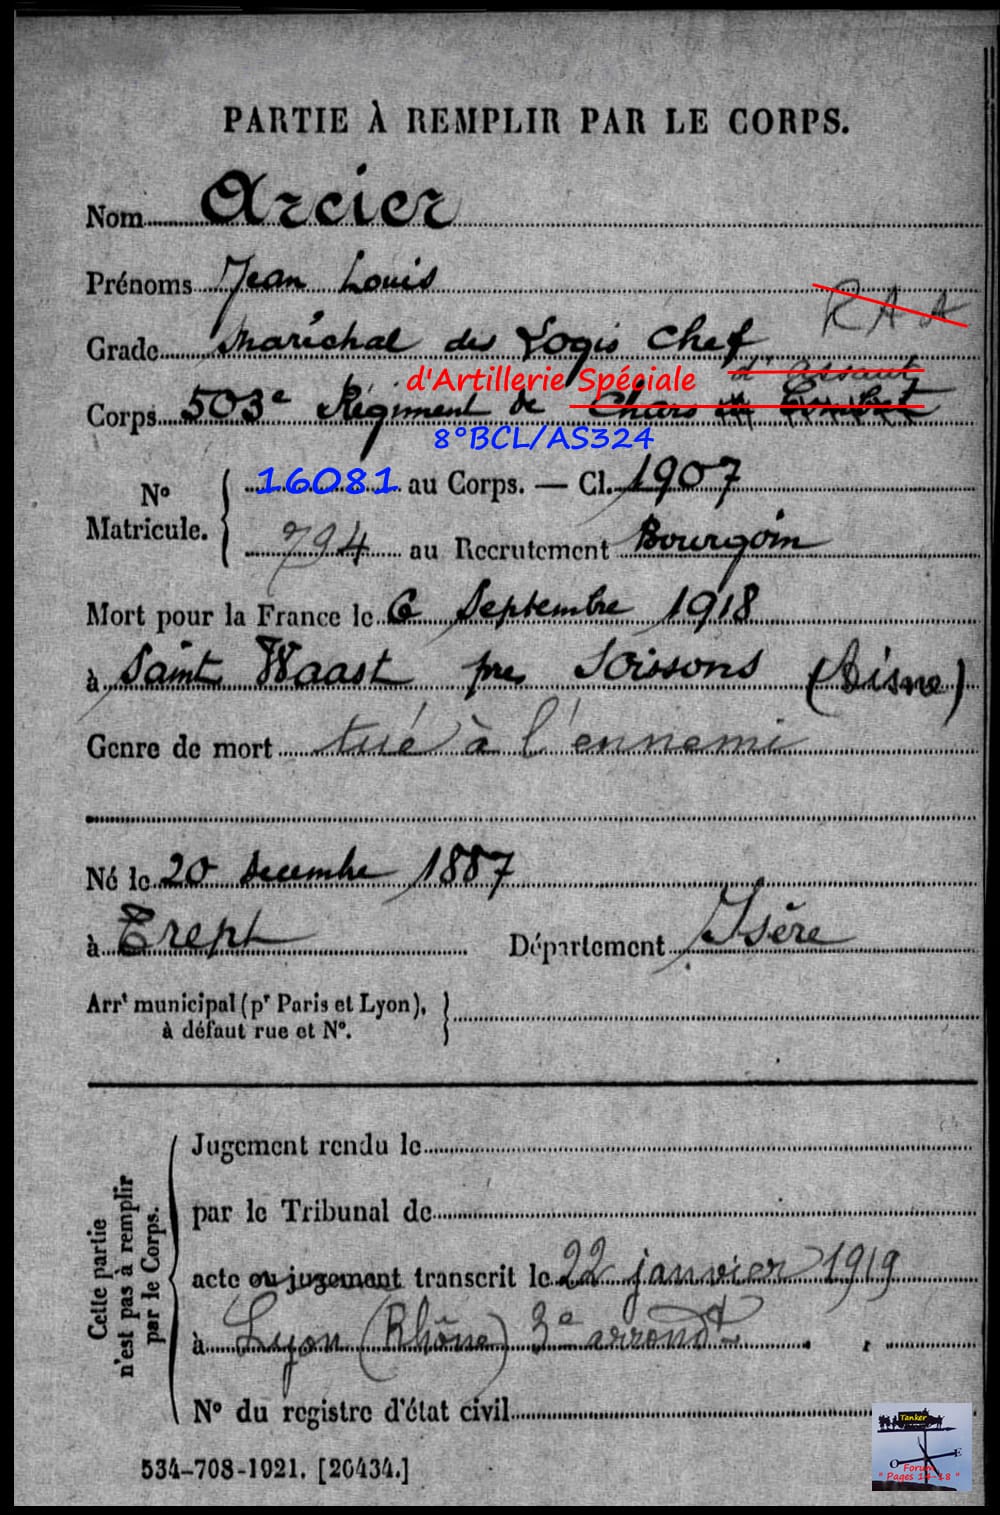 PARTIE À REMPLIR PAR LE CORPS.
Nom Arcier
Prénoms Jean Louis
R A A
Grade Maréchal des Logis Chef
d'assaut
d'Artillerie Spéciale
Corps 503e Régiment de Chars de Combat
8°BCL/AS324
No Matricule. { 16081 au Corps. — Cl. 1907
794 au Recrutement Bourgoin
Mort pour la France le 6 Septembre 1918
à Saint Waast pres Soissons (Aisne)
Genre de mort tué à l'ennemi
Né le 20 decembre 1887
à Trept Département Isère
Arrt municipal (pr Paris et Lyon),
à défaut rue et No. }
Cette partie
n'est pas à remplir
par le Corps.
Jugement rendu le
par le Tribunal de
acte ou jugement transcrit le 22 janvier 1919
à Lyon (Rhône) 3e arrondt
No du registre d'état civil
534-708-1921. [26434.]
Tanker
O E
Forum
" Pages 14-18 "